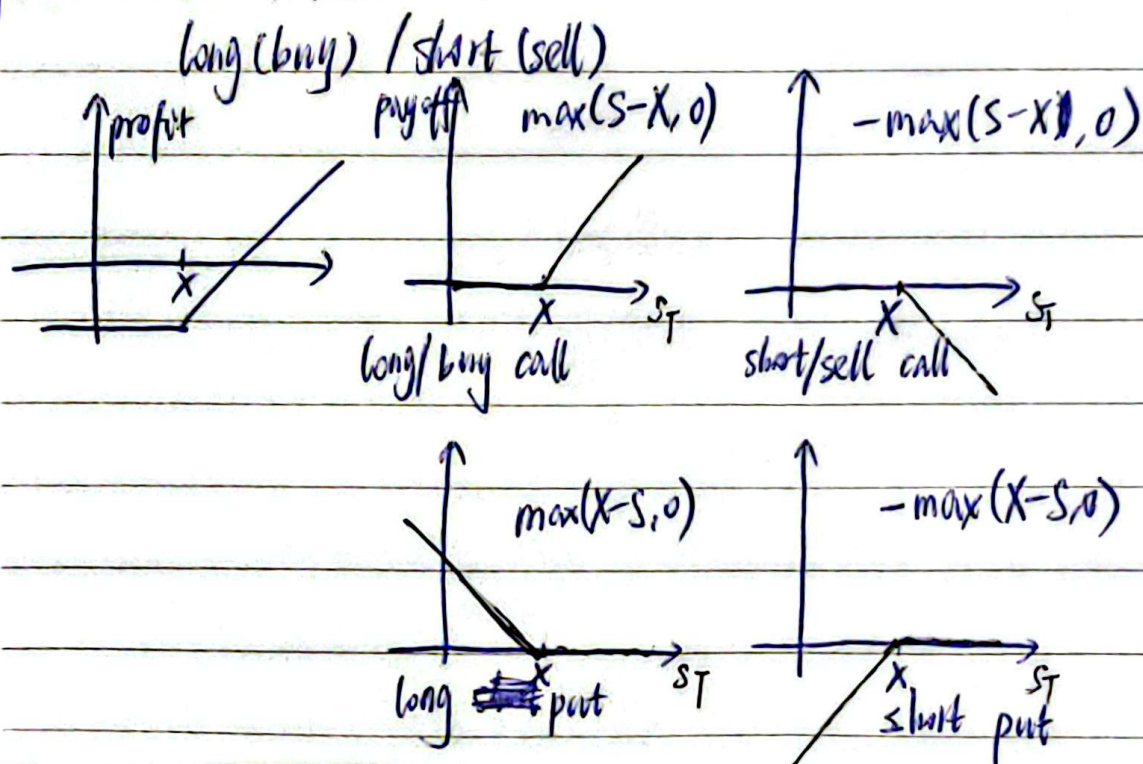 long (buy) / short (sell)
profit
X
payoff
max(S-X, 0)
X
S_T
long/buy call
-max(S-X, 0)
X
S_T
short/sell call
max(X-S, 0)
X
S_T
long put
-max(X-S, 0)
X
S_T
short put